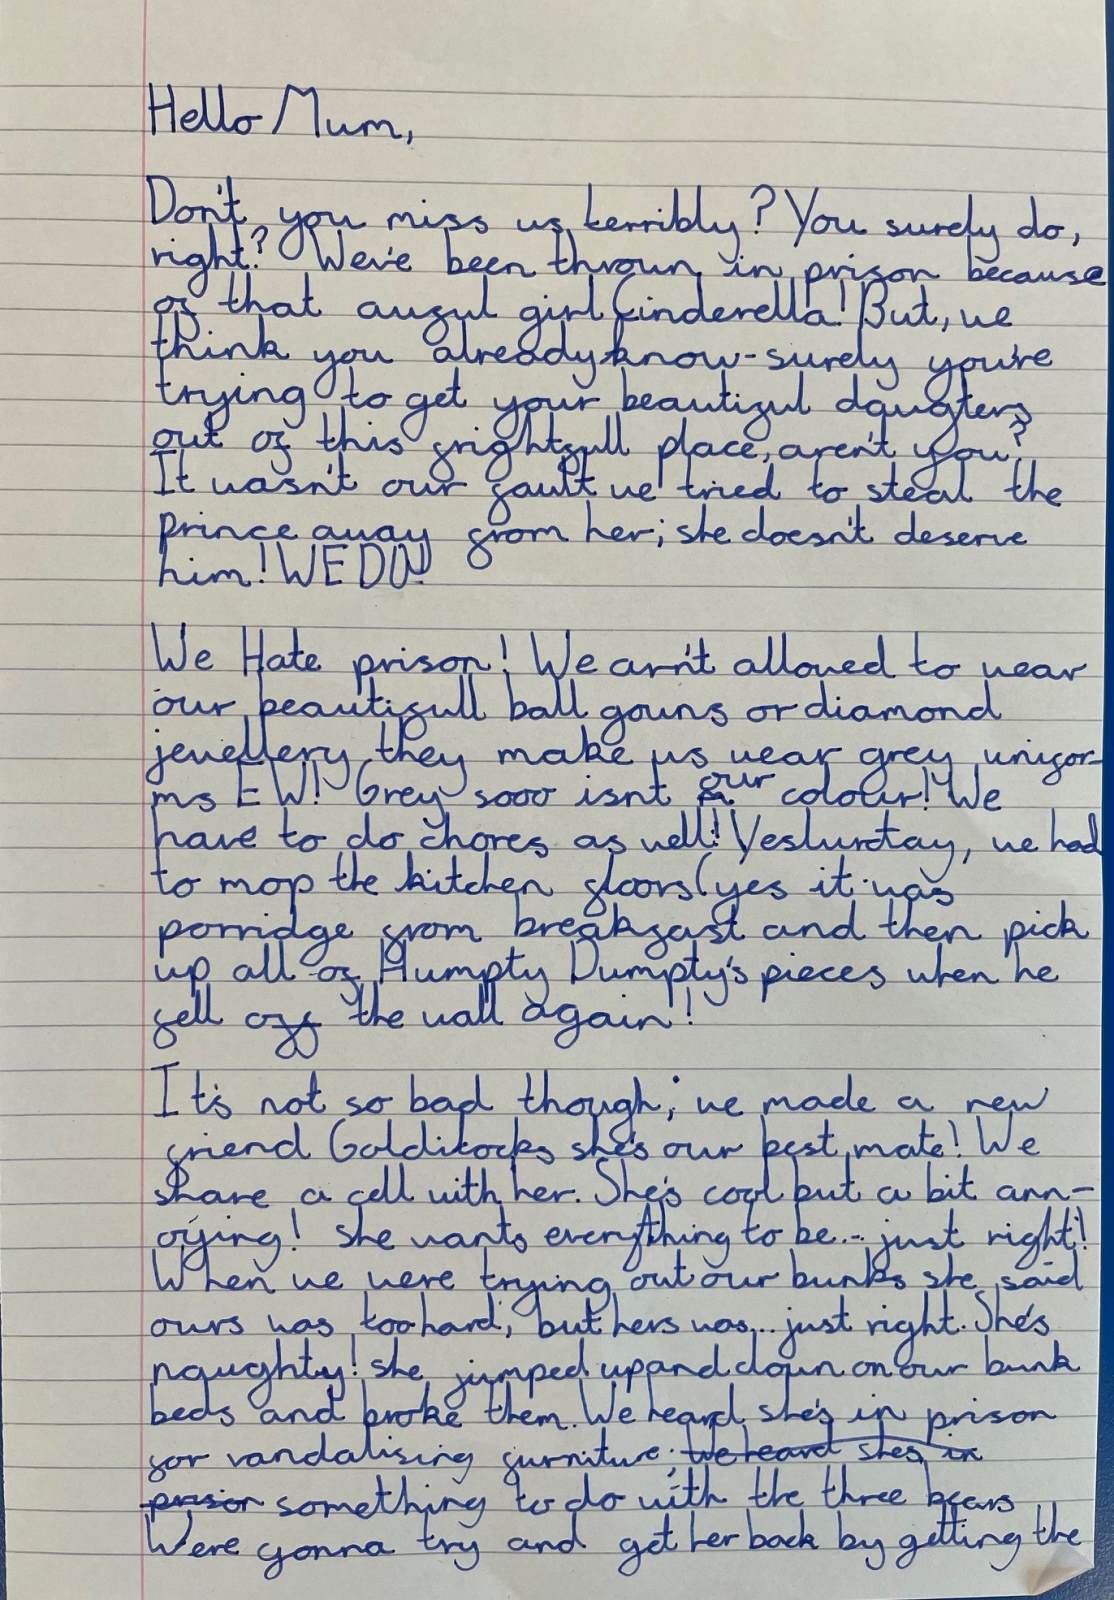 Hello Mum,
Don't you miss us terribly? You surely do,
right? We've been thrown in prison because
of that awful girl Cinderella! But, we
think you already know - surely you're
trying to get your beautiful daugters
out of this frightfull place, aren't you?
It wasn't our fault we tried to steal the
prince away from her; she doesn't deserve
him! WE DO!
We Hate prison! We arn't allowed to wear
our beautifull ball gowns or diamond
jewellery they make us wear grey unifor-
ms EW! Grey sooo isnt our colour! We
have to do chores as well! Yesturtay, we had
to mop the kitchen floors (yes it was
porridge from breakfast and then pick
up all of Humpty Dumpty's pieces when he
fell off the wall again!
It's not so bad though; we made a new
friend Goldilocks she's our best mate! We
share a cell with her. She's cool but a bit ann-
oying! she wants everything to be... just right!
When we were trying out our bunks she said
ours was too hard; but hers was... just right. She's
naughty! she jumped up and down on our bunk
beds and broke them. We heard she's in prison
for vandalising furniture; we heard shes in
prison something to do with the three bears
We're gonna try and get her back by getting the